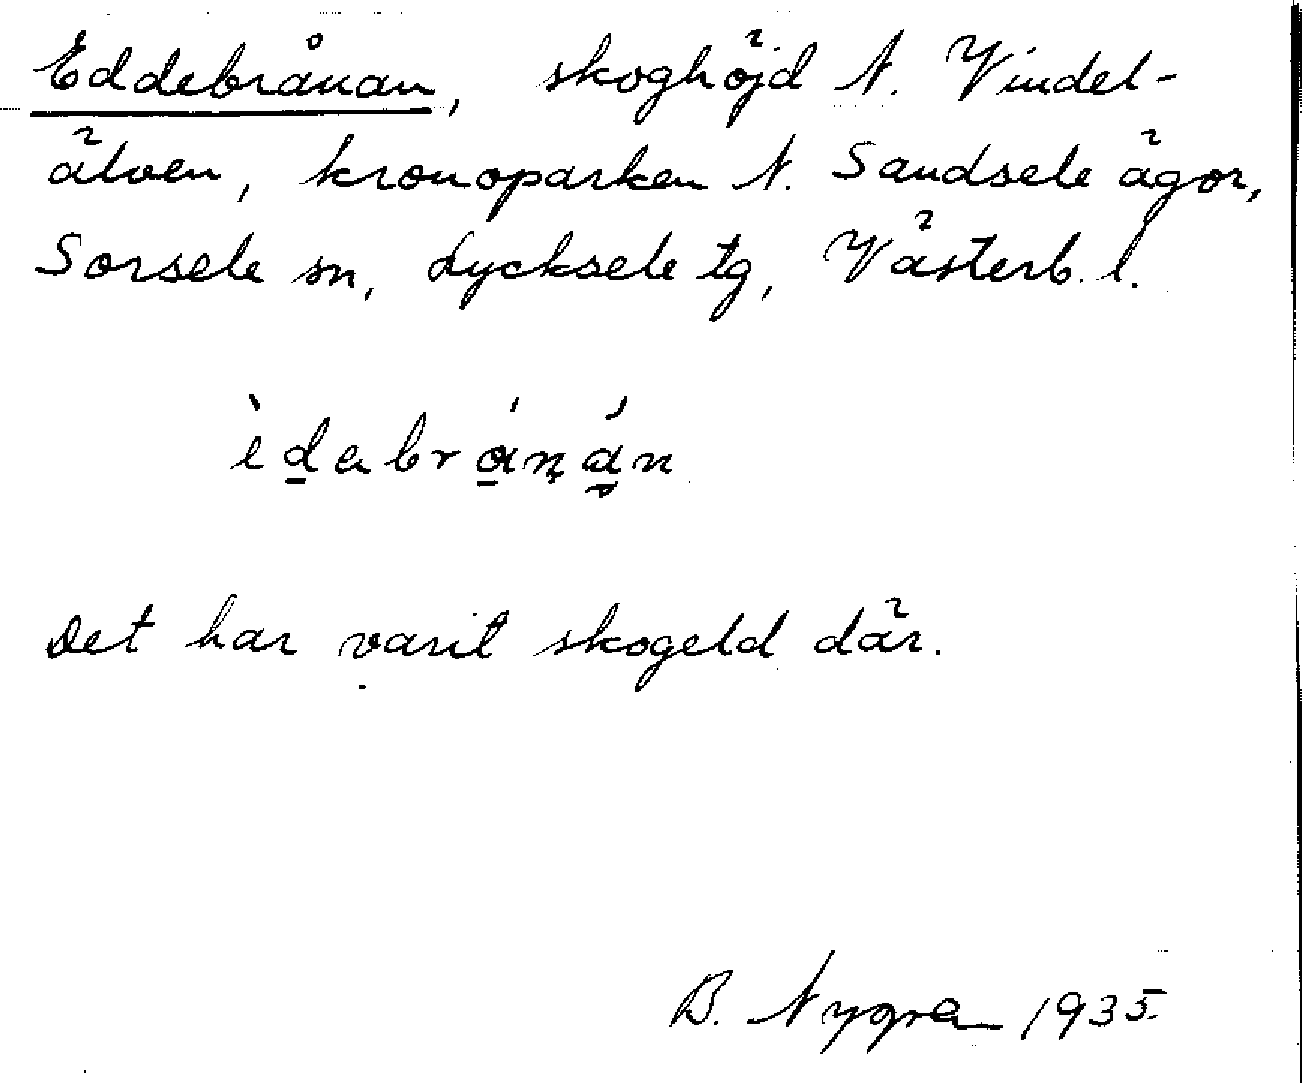 Eddebrånan, skoghöjd N. Vindel-
älven, kronoparken N. Sandsele ägor,
Sorsele sn, Lycksele tg, Västerb. l.
Det har varit skogeld där.
B. Nygren 1935